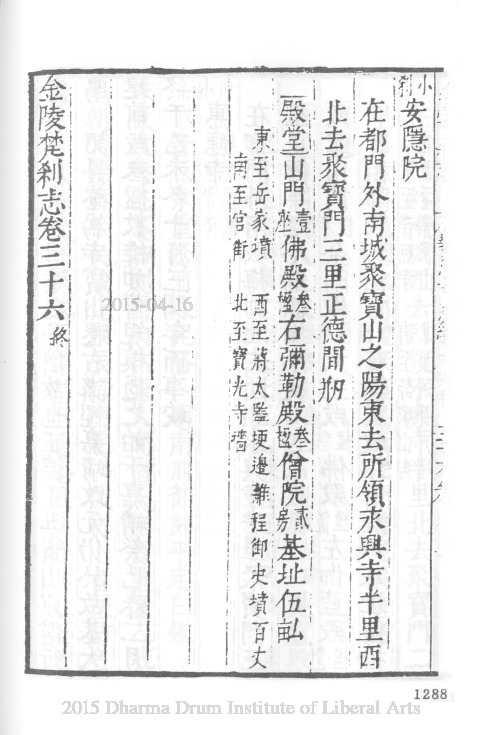 小剎
安隱院
在都門外南城聚寶山之陽東去所領永興寺半里西
北去聚寶門三里正德間刱
殿堂山門壹座佛殿叁楹右彌勒殿叁楹僧院貳房基址伍畝
東至岳家墳 西至蔣太監埂邊離程御史墳百丈
南至官街 北至寶光寺墻
金陵梵剎志卷三十六終
2015-04-16
1288
2015 Dharma Drum Institute of Liberal Arts